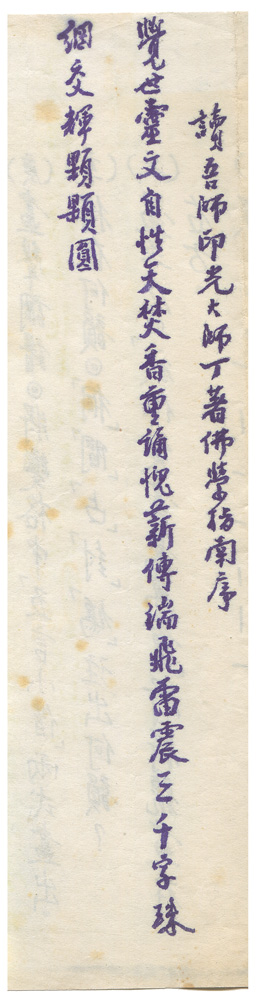 讀吾師印光大師丁著佛學指南序
覺世靈文自性天焚香重誦愧薪傳端飛雷震三千字珠
網交輝顆顆圓